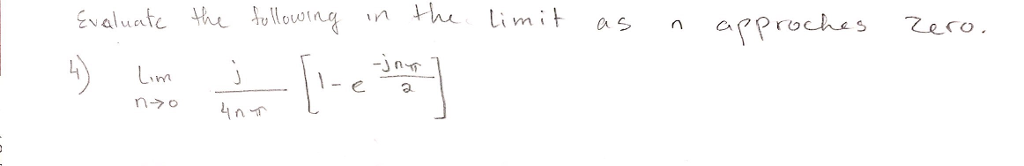 Evaluate the following in the limit as n approches zero.
4) lim n→0 j/4nπ [1-e^(-jnπ/2)]